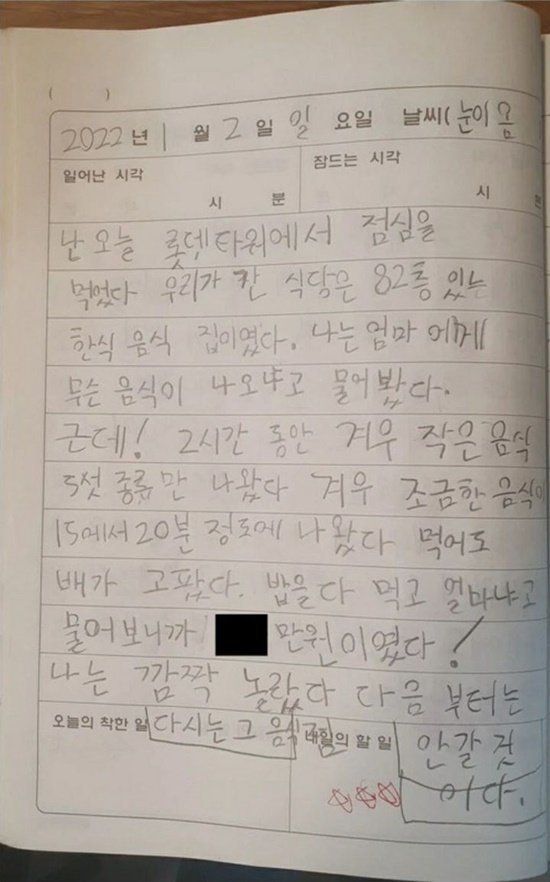 ( )
2022 년 1 월 2 일 일 요일 날씨( 눈이 옴
일어난 시각 시 분
잠드는 시각 시 분
난 오늘 롯뎃타워에서 점심을
먹었다 우리가 간 식당은 82층 있는
한식 음식 집이였다. 나는 엄마 에게
무슨 음식이 나오냐고 물어 봤다.
근데! 2시간 동안 겨우 작은 음식
5섯 종류만 나왔다 겨우 조금한 음식이
15에서 20분 정도에 나왔다 먹어도
배가 고팠다. 밥을 다 먹고 얼마냐고
물어보니까 만원이였다!
나는 깜짝 놀랐다 다음 부터는
오늘의 착한 일 다시는 그 음식점
내일의 할 일 안 갈 것
이다.